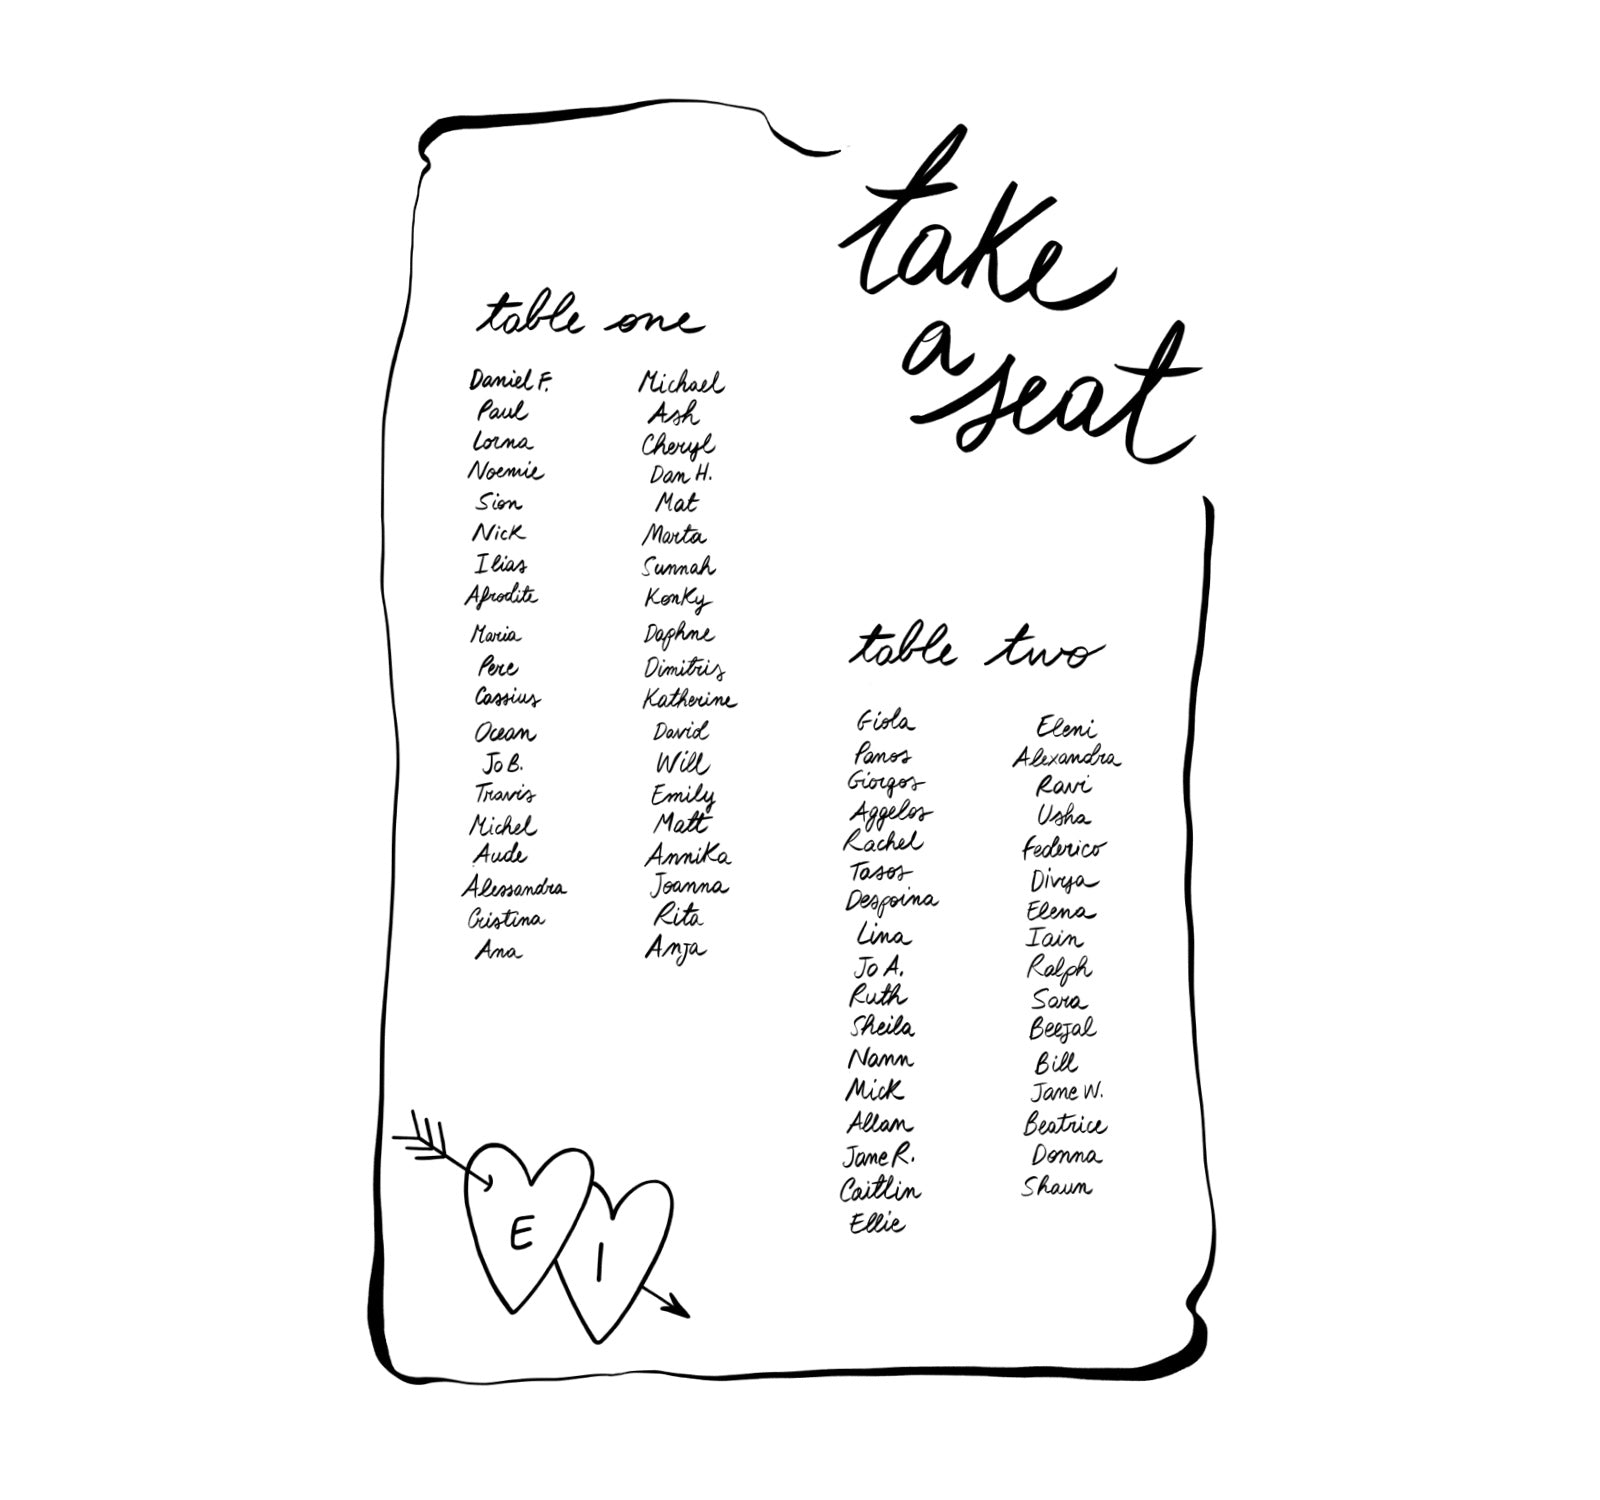 take
a
seat
table one
Daniel F.
Paul
Lorna
Noemie
Sion
Nick
Ilias
Afrodite
Maria
Pere
Cassius
Ocean
Jo B.
Travis
Michel
Aude
Alessandra
Cristina
Ana
Michael
Ash
Cheryl
Dan H.
Mat
Marta
Sunnah
Konky
Daphne
Dimitris
Katherine
David
Will
Emily
Matt
Annika
Joanna
Rita
Anja
table two
Giola
Panos
Giorgos
Aggelos
Rachel
Tasos
Despoina
Lina
Jo A.
Ruth
Sheila
Nann
Mick
Allan
Jane R.
Caitlin
Ellie
Eleni
Alexandra
Ravi
Usha
Federico
Divya
Elena
Iain
Ralph
Sara
Beejal
Bill
Jane W.
Beatrice
Donna
Shaun
E
I